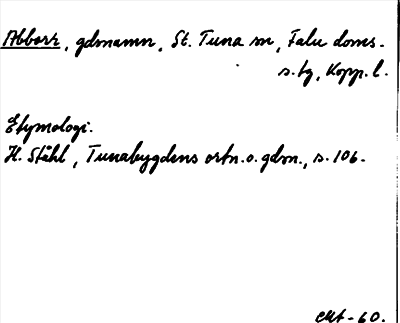 Abborr, gdmamn, St. Tuna sn, Falu doms.
s. tg, Kopp. l.
Etymologi.
H. Ståhl, Tunabygdens ortn. o. gdm., s. 106.
-60.